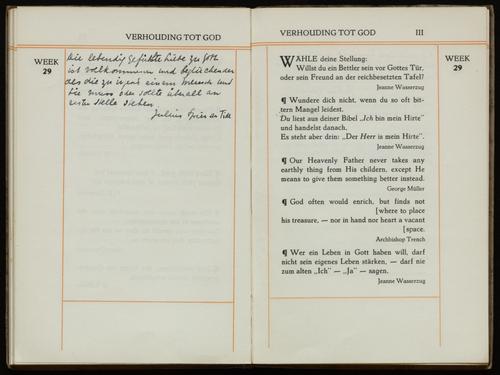 VERHOUDING TOT GOD
WEEK
29
Die lebendig gefühlte Liebe zu Gott
ist vollkommener und beglückender
als die zu irgend einem Mensch und
Sie muss oder sollte überall an
erster Stelle stehen.
Julius
VERHOUDING TOT GOD III
WEEK
29
WAHLE deine Stellung:
Willst du ein Bettler sein vor Gottes Tür,
oder sein Freund an der reichbesetzten Tafel?
Jeanne Wasserzug
¶ Wundere dich nicht, wenn du so oft bit-
tern Mangel leidest.
Du liest aus deiner Bibel „Ich bin mein Hirte"
und handelst danach.
Es steht aber drin: „Der Herr is mein Hirte".
Jeanne Wasserzug
¶ Our Heavenly Father never takes any
earthly thing from His childern, except He
means to give them something better instead.
George Müller
¶ God often would enrich, but finds not
[where to place
his treasure, — nor in hand nor heart a vacant
[space.
Archbishop Trench
¶ Wer ein Leben in Gott haben will, darf
nicht sein eigenes Leben stärken, — darf nie
zum alten „Ich" — „Ja" — sagen.
Jeanne Wasserzug